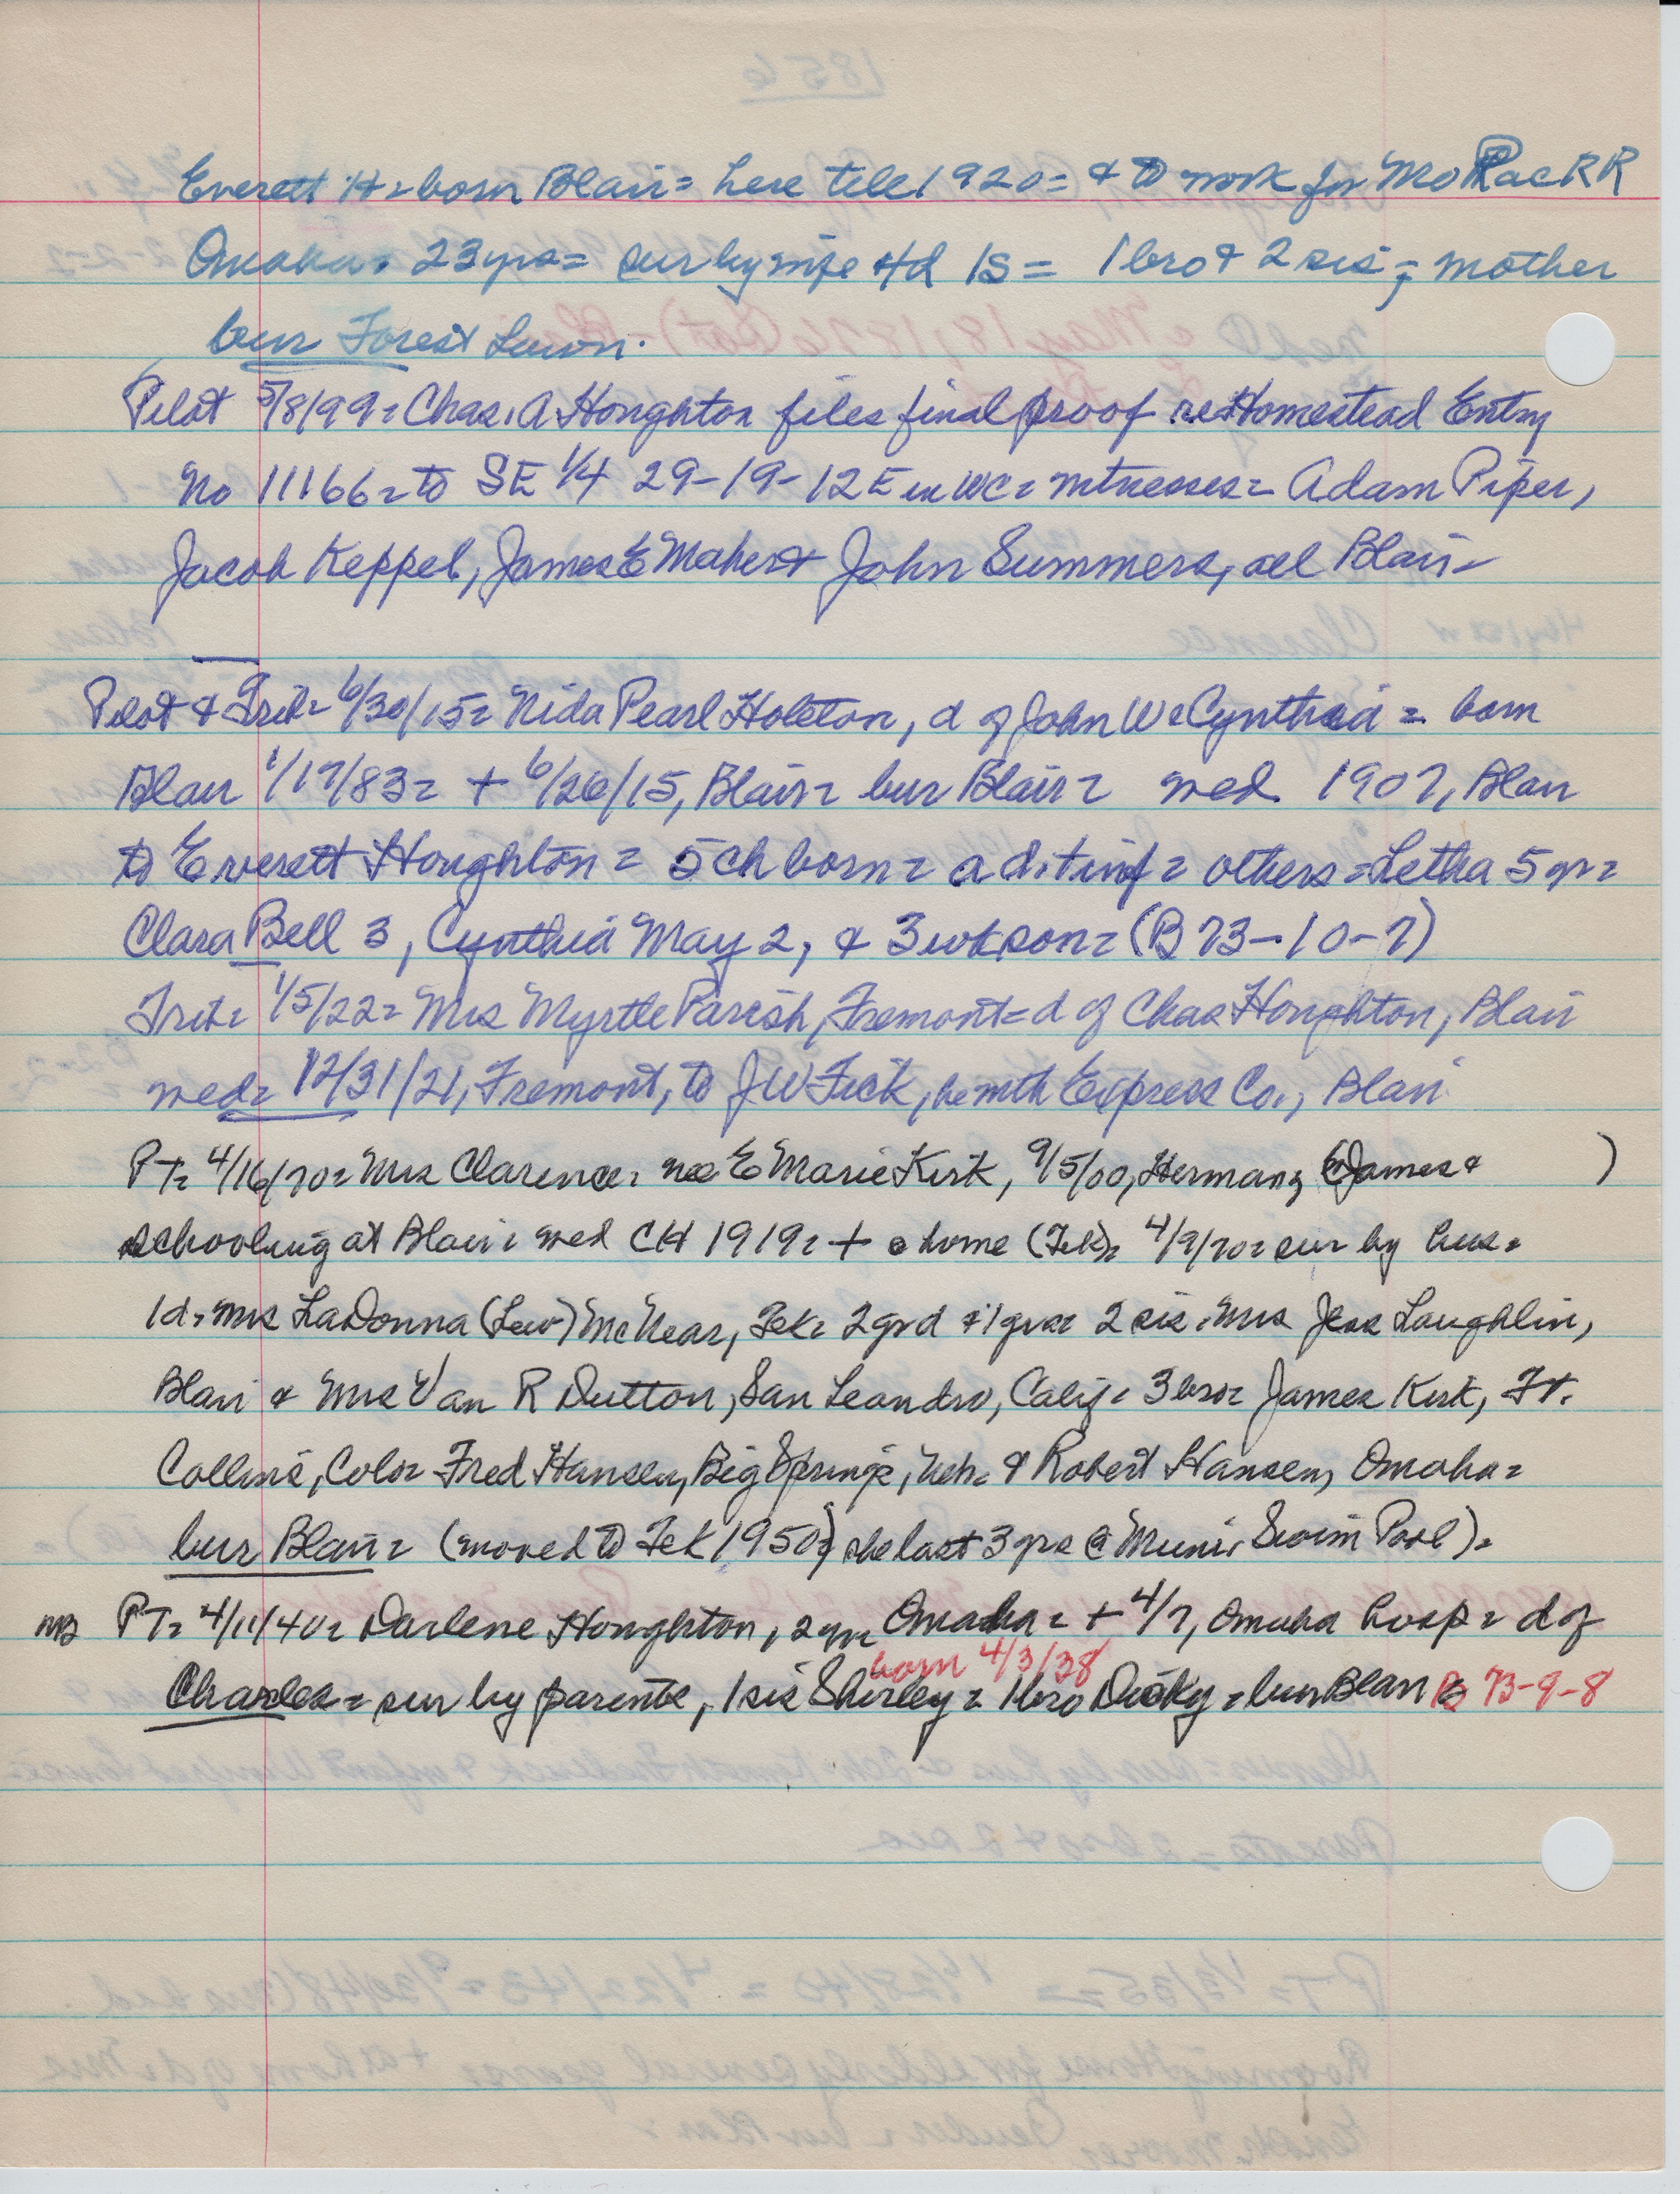 Everett H = born Blair = here till 1920 = & to work for Mo Pac RR
Omaha. 23 yrs = sur by wife 4d 1s = 1 bro & 2 sis; = mother
bur Forest Lawn.
Pilot 5/8/99 = Chas. A Houghton files final proof re Homestead Entry
No 11166 = to SE 1/4 29-19-12 E in WC = witnesses = Adam Piper,
Jacob Keppel, James E Maher & John Summers, all Blair -
Pilot & Trib = 6/30/15 = Nida Pearl Holeton, d of John W & Cynthia = born
Blair 1/17/83 = + 6/26/15, Blair = bur Blair = wed 1907, Blair
to Everett Houghton = 5 ch born = a d. + inf = others = Letha 5 yr =
Clara Bell 3, Cynthia May 2, & 3 wk son = (B 73-10-7)
Trib = 1/5/22 = Mrs Myrtle Parish, Fremont = d of Chas Houghton, Blair
wed = 12/31/21, Fremont, to J W Fick, he mth Express Co., Blair
PT = 4/16/70 = Mrs Clarence = nee E Marie Kirk, 9/5/00, Herman, (James & )
schooling at Blair = wed CH 1919 = + @ home (Tek) = 4/9/70 = sur by hus =
1 d. Mrs LaDonna (Lew) McNear, Tek = 2 grd & 1 grs = 2 sis. Mrs Jess Laughlin,
Blair & Mrs Van R Dutton, San Leandro, Calif = 3 bro = James Kirk, Ft.
Collins, Colo = Fred Hansen, Big Springs, Neb = & Robert Hansen, Omaha =
bur Blair = (moved to Tek 1950; she last 3 yrs @ Muni. Swim Pool) =
NB PT = 4/11/40 = Darlene Houghton, 2 yr Omaha = + 4/7, Omaha hosp = d of
born 4/3/38
Charles = sur by parents, 1 sis Shirley = 1 bro Dicky = bur Blair B 73-9-8